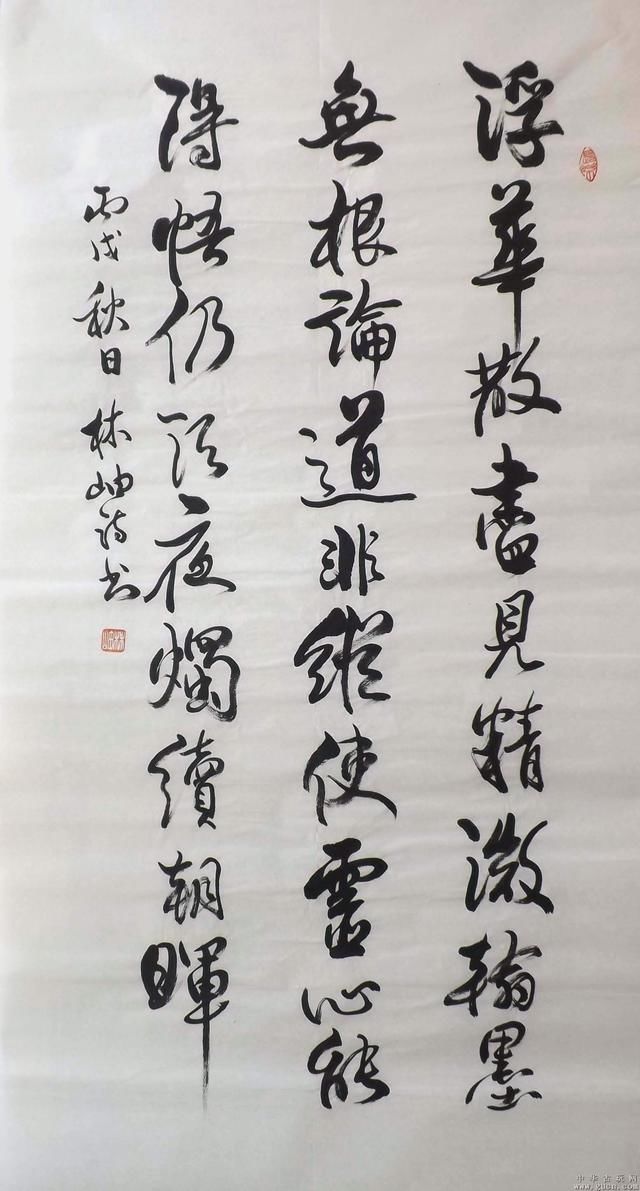 浮華散盡見精微翰墨
無根論道非縱使靈心能
得悟仍須夜燭續朝暉
丙戌秋日 林岫詩书
中华古玩网
www.gucn.com